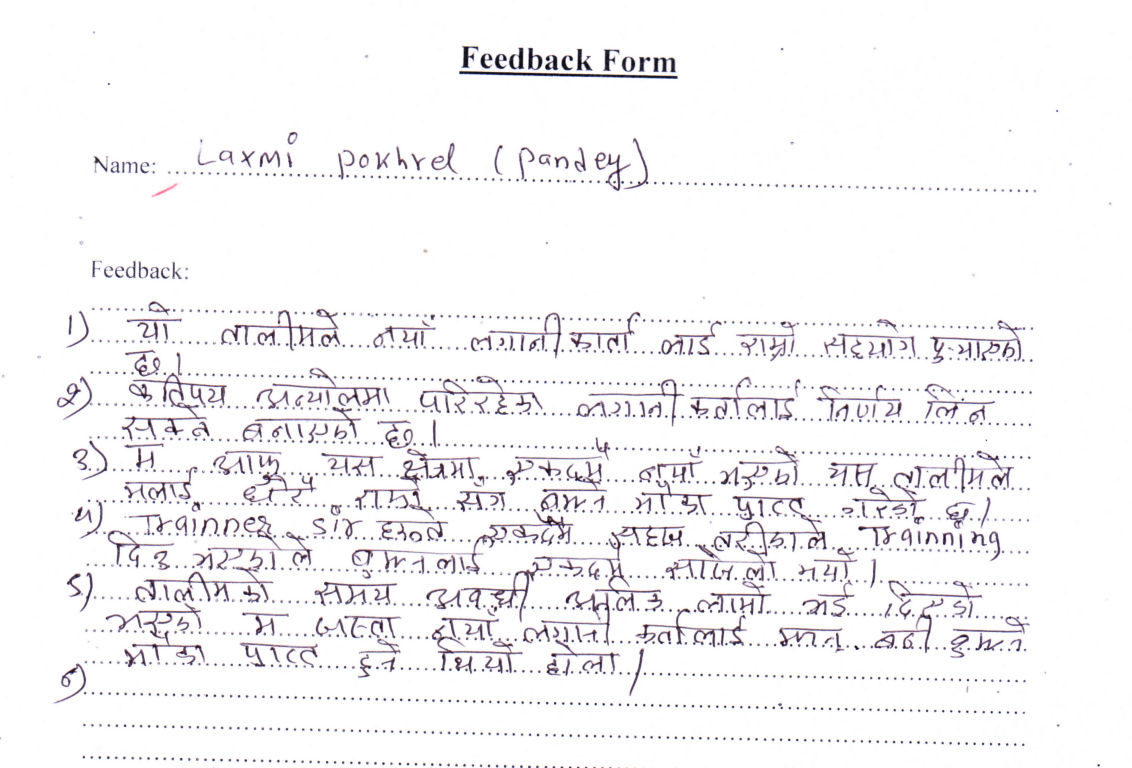 Feedback Form
Name: Laxmi pokhrel (pandey)
Feedback:
1) यो तालीमले नयाँ लगानी कार्ता लाई राम्रो सहयोग पुऱ्याएको
छ।
२) कतिपय अन्योलमा परिरहेका लगानी कर्तालाई निर्णय लिन
सक्ने बनाएको छ।
३) म आफू यस क्षेत्रमा एकदमै नयाँ भएको यस तालीमले
मलाई धेरै राम्ररी सग बुझ्ने मौका प्राप्त गरेको छु।
४) Trainner Sir हरुले एकदमै सहज तरीकाले Trainning
दिनु भएकोले बुझ्नलाई एकदमै सजिलो भयो।
५) तालीमको समय अवधी अलिक लामो गई दिएको
भएको म जस्ता नयाँ लगानी कर्तालाई झन बढी बुझ्ने
मौका प्राप्त हुने थियो होला।
६)